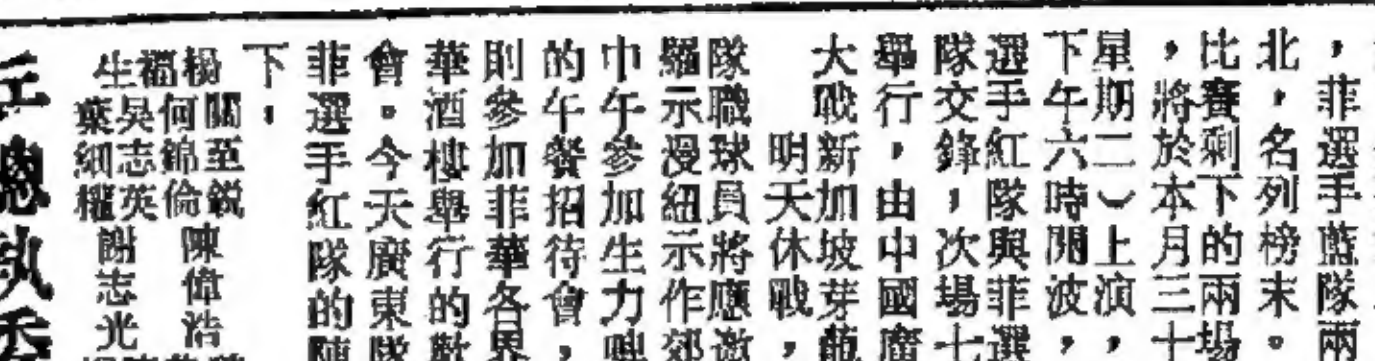 ，菲選手藍隊兩
北，名列榜末。
比賽剩下的兩場
，將於本月三十
星期二）上演，
下午六時開波，
選手紅隊與菲選
隊交鋒，次場七
舉行，由中國廣
大戰新加坡芽籠
明天休戰，
隊職球員將應邀
羅示漫紐示作郊
巾午參加生力啤
的午餐招待會，
則參加菲華各界
華酒樓舉行的歡
會。今天廣東隊
菲選手紅隊的陣
下：
楊關至銳 陳偉浩
福何錦倫
生吳志英 謝志光
葉細權
丘總執委